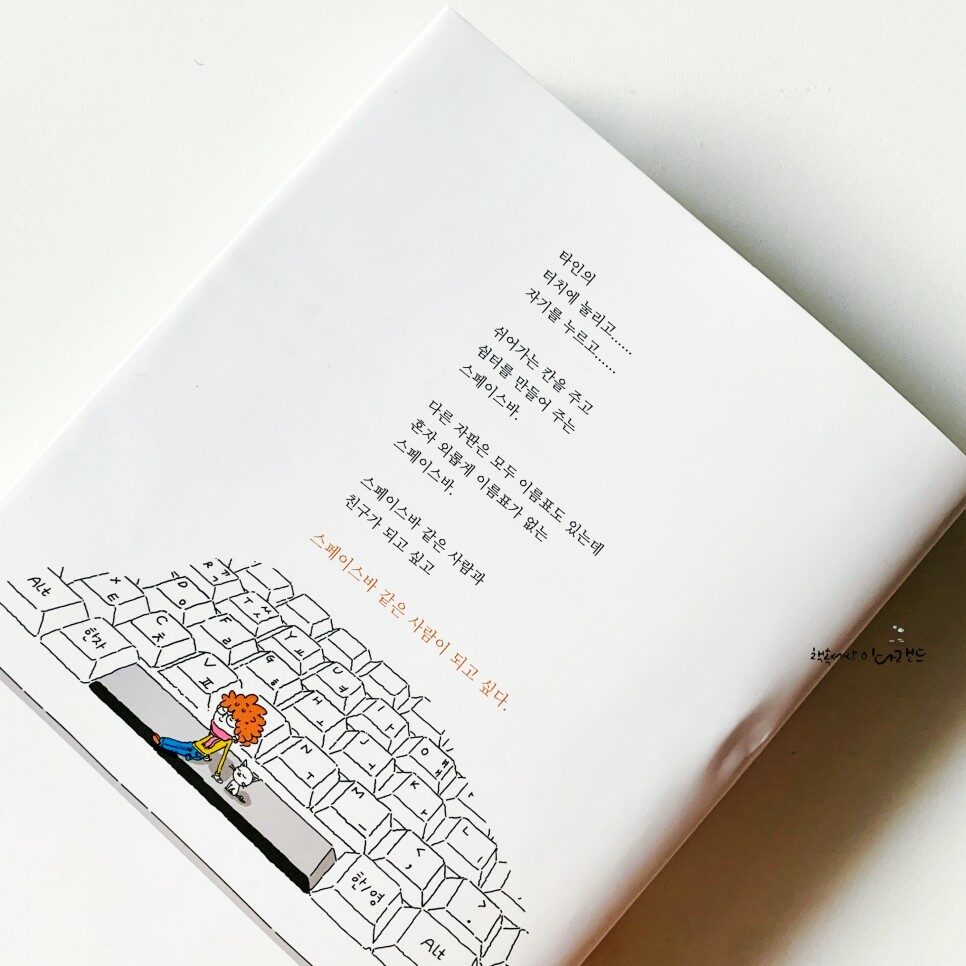 타인의
터치에 눌리고......
자기를 누르고......
쉬어가는 칸을 주고
쉼터를 만들어 주는
스페이스바.
다른 자판은 모두 이름표도 있는데
혼자 외롭게 이름표가 없는
스페이스바.
스페이스바 같은 사람과
친구가 되고 싶고
스페이스바 같은 사람이 되고 싶다.
Alt
한자
X
E
C
ㅊ
D
ㅇ
V
ㅍ
F
ㄹ
R
ㄲ
ㄱ
T
ㅆ
ㅅ
G
ㅎ
Y
ㅛ
U
ㅕ
H
ㅗ
N
ㅜ
J
ㅓ
M
ㅡ
K
ㅏ
L
ㅣ
ㅒ
ㅐ
<
,
>
.
한/영
Alt